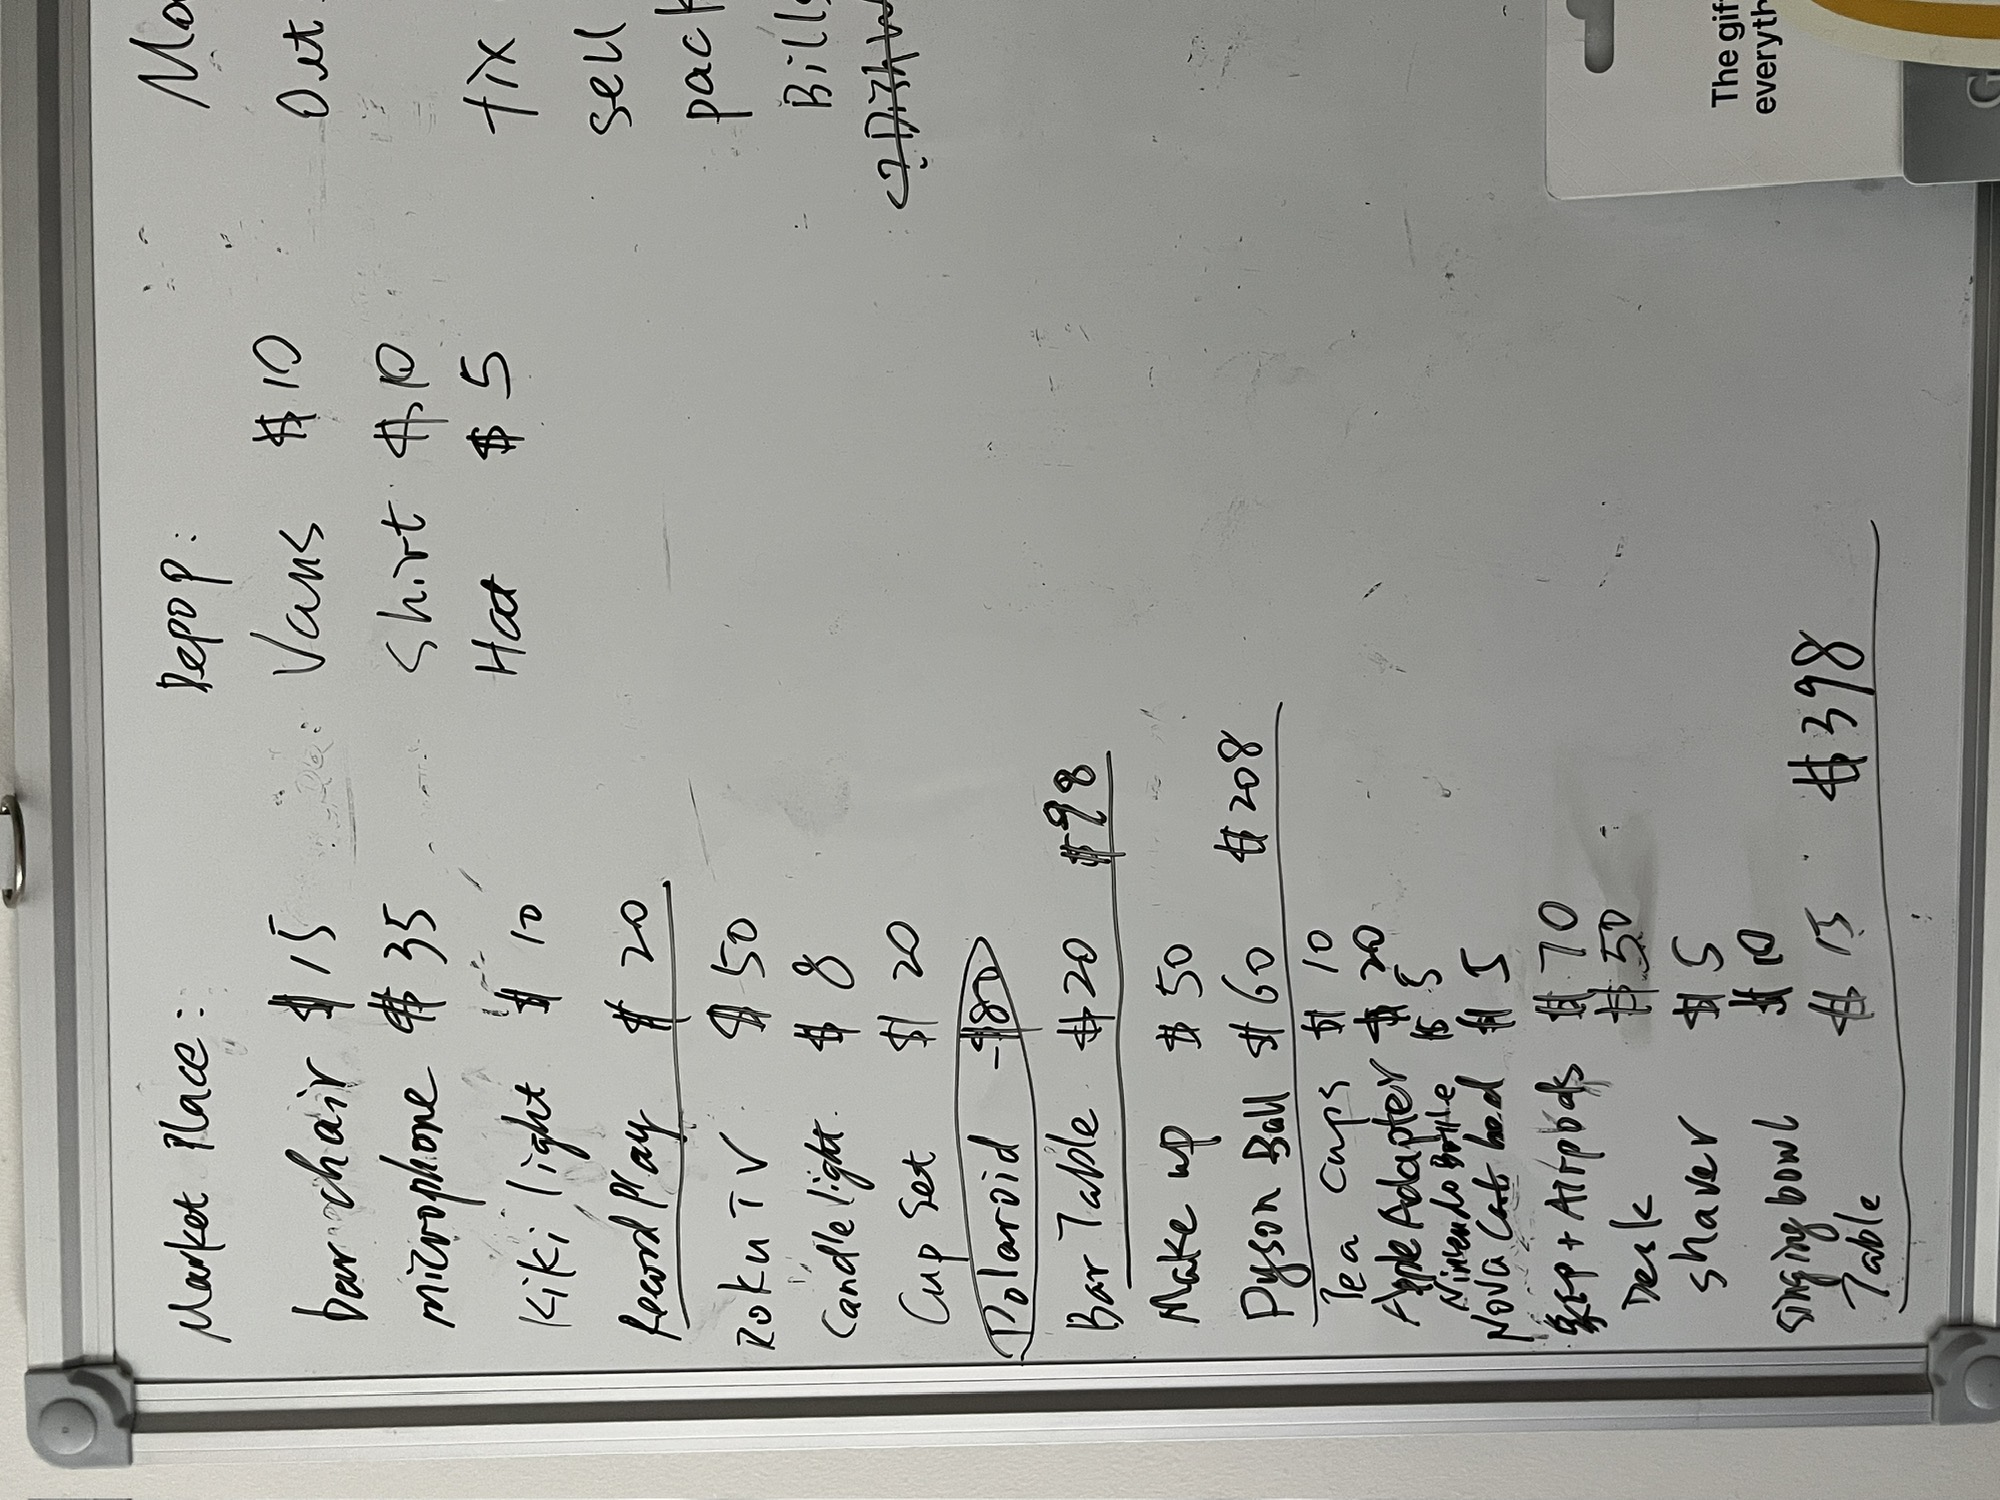 Market Place:
bar chair $15
microphone $35
Kiki light $10
Record Play $20
Roku TV $50
Candle light $8
Cup Set $20
Polaroid -$80
Bar Table $20 $98
Make up $50
Dyson Ball $60 $208
Tea cups $10
Apple Adapter $20
Nintendo Bottle $5
Nova Cat bed $5
+ Airpods $70
Desk $50
shaver $5
singing bowl $10
Table $15 $398
Depop:
Vans $10
Shirt $10
Hat $5
fix
sell
pack
Bills
The gif
everyth